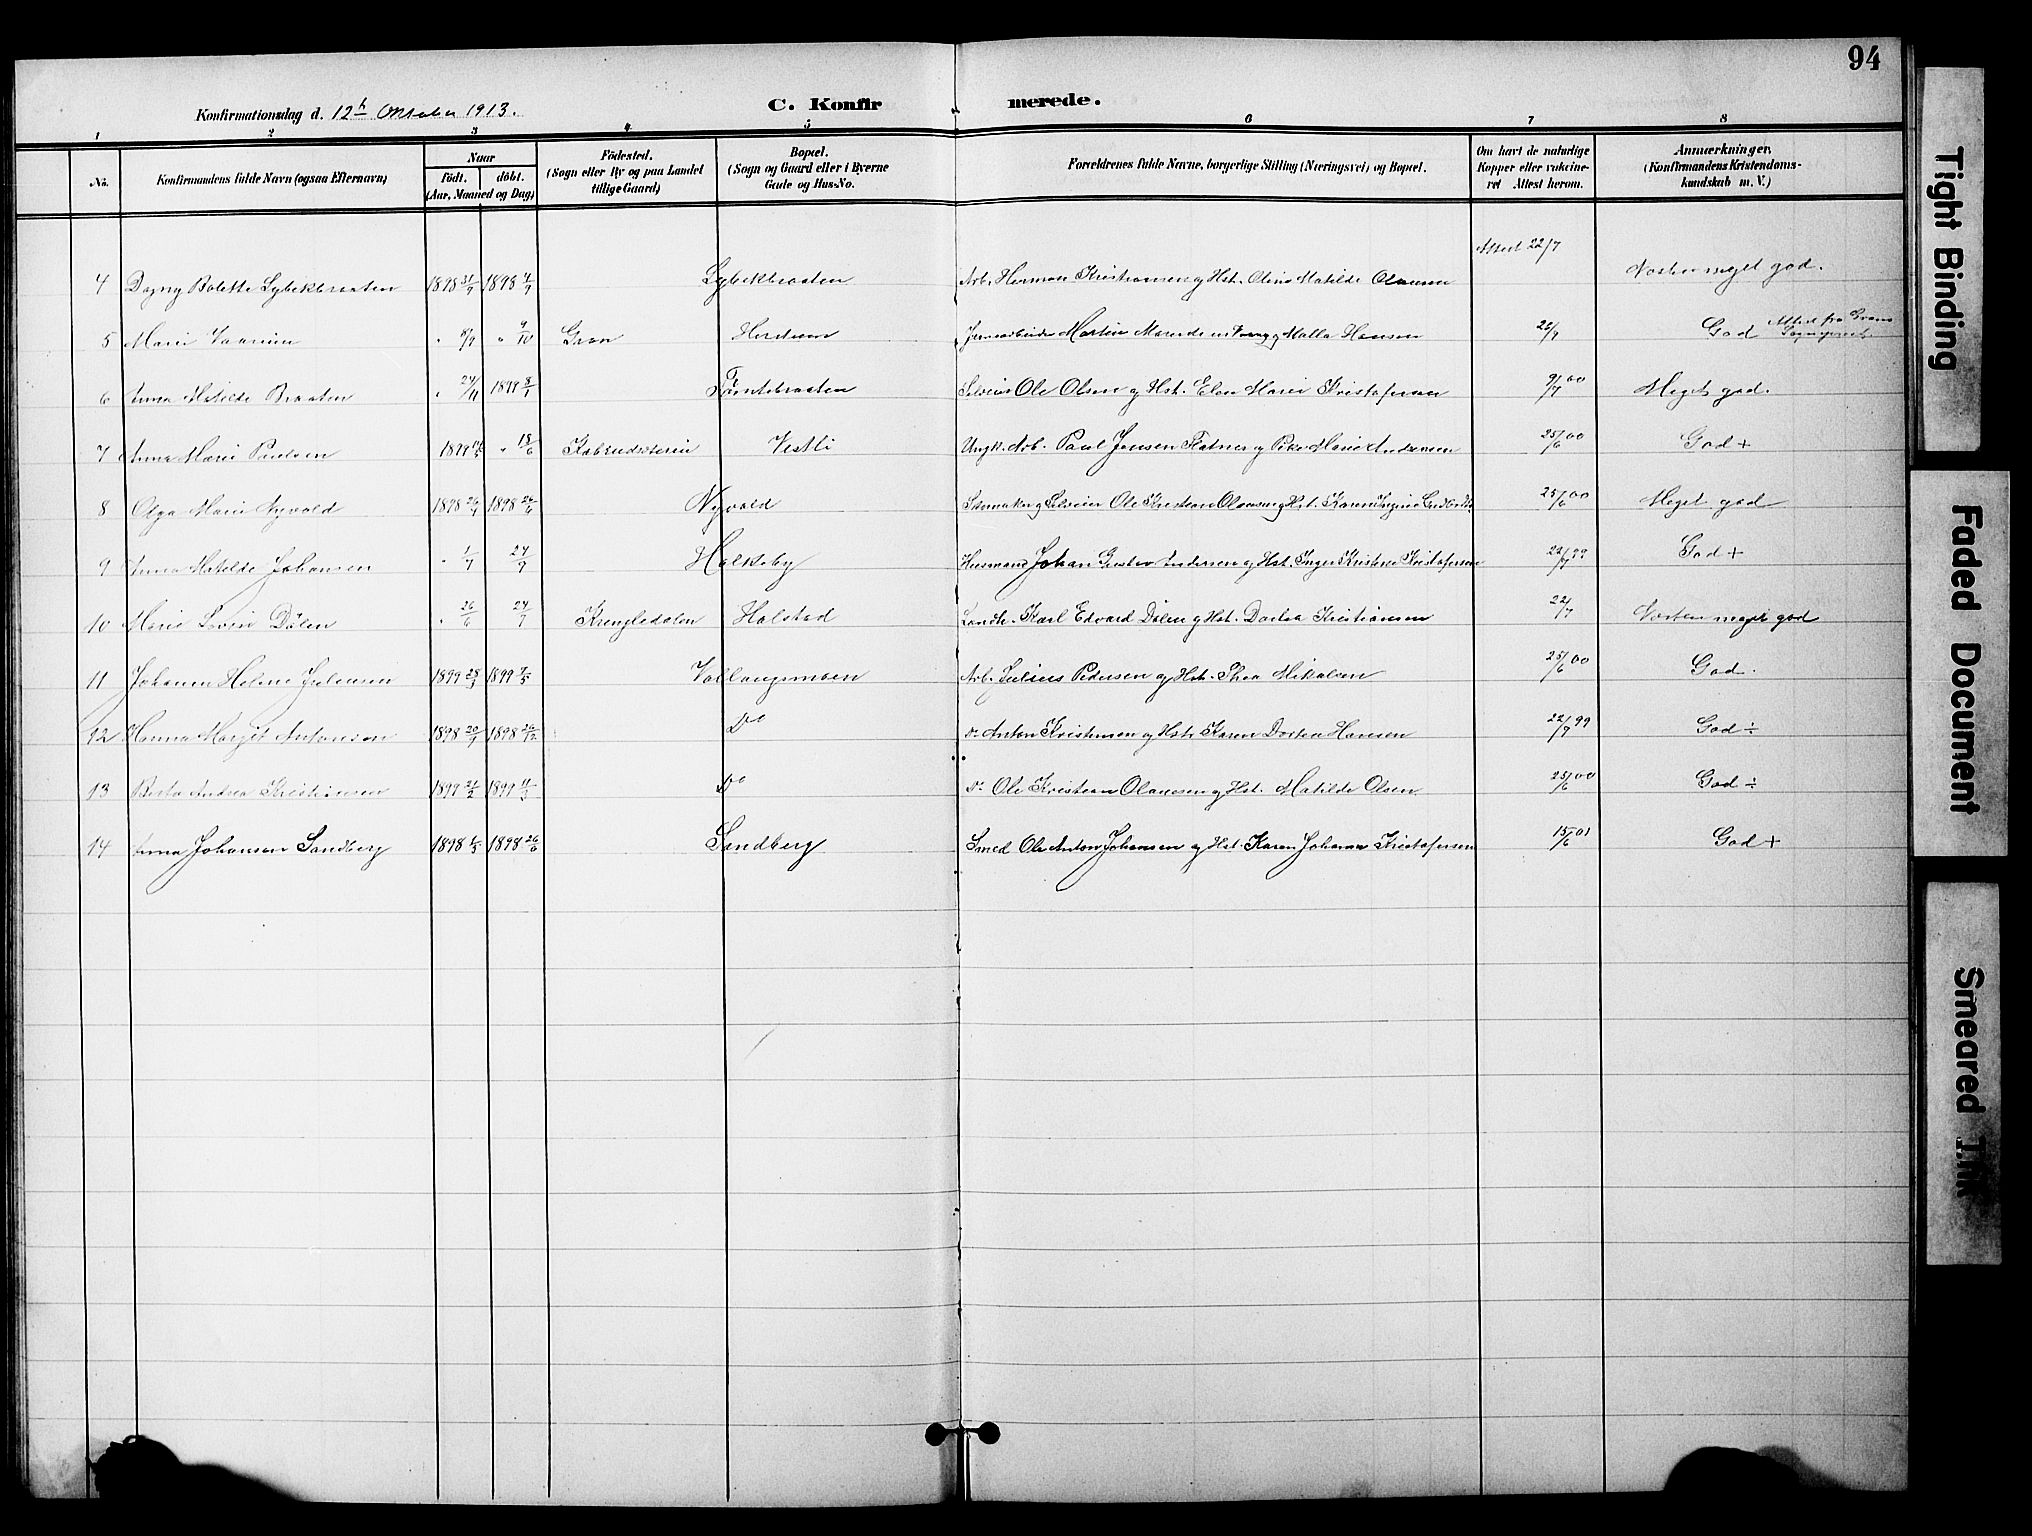 94
Konfirmationsdag d. 12te Oktober 1913.
C. Konfirmerede.
1 2 3 4 5 6 7 8
No.
Konfirmandens fulde Navn (ogsaa Efternavn)
Naar
født. døbt.
(Aar, Maaned og Dag)
Fødested.
(Sogn eller By og paa Landet
tillige Gaard)
Bopæl.
(Sogn og Gaard eller i Byerne
Gade og Hus-No.
Forældrenes fulde Navne, borgerlige Stilling (Næringsvei) og Bopæl.
Om havt de naturlige
Kopper eller vakcine-
ret Attest herom.
Anmærkninger.
(Konfirmandens Kristendoms-
kundskab m. V.)
Attest 22/7
4 Dagny Bolette Lybekbraaten 1898 1898 Lybekbraaten Arb. Herman Kristiansen og Hst. Oline Matilde Olausen Næsten meget god.
5 Marie " 8/9 " 9/10 Gran Martin og Malla Hansen 26/9 God Attest fra Grans
Sogneprest
6 Anna Matilde Braaten " 24/11 1899 8/1 Tøntebraaten Selveier Ole Olsen og Hst. Elen Marie Kristofersen 9/7 00 Meget god.
7 Anna Marie Paulsen 1899 " 18/6 Vestli Ungk. Arb. Paul Jensen og Pike Marie Andersen 25/6 00 God +
8 Olga Marie Nyvold 1898 1898 26/6 Nyvold Skomaker og Selveier Ole Kristian Olausen og Hst. Karen 25/6 00 Meget god
9 Anna Matilde Johansen " 1/7 24/7 Holkeby Husmand Johan Gustav Andersen og Hst. Inger Kristine Kristofersen 22/7 99 God +
10 Marie Lovise Dölen " 26/6 24/7 Krengledalen Halstad Karl Edvard Dölen og Hst. Dortea Kristiansen 22/7 Næsten meget god
11 Johanna Helene Juliussen 1899 25/3 1899 7/5 Vollaugsmoen Arb. Julius Pedersen og Hst. Thea Mikalsen 25/6 00 God.
12 Hanna Margit Antonsen 1898 20/9 1898 26/12 Do Do Anton Kristiansen og Hst. Karen Dortea Hansen 22/9 99 God ÷
13 Berta Andrea Kristiansen 1899 21/2 1899 Do Do Ole Kristian Olaussen og Hst. Matilde Olsen 25/6 00 God ÷
14 Anna Johansen Sandberg 1898 1898 26/6 Sandberg Smed Ole Anton Johansen og Hst. Karen Johanne Kristofersen 15/6 01 God +
Tight Binding
Faded Document
Smeared Ink